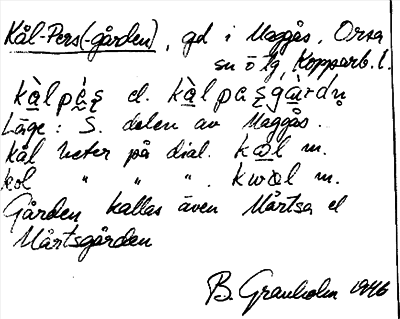 Kål-Pers(-gården), gd i Maggås. Orsa
sn ö tg, Kopparb. l.
kàlpäș el. kàlpașgàrdn
Läge: S. delen av Maggås.
kål heter på dial. kal m.
kol " " " . kwal m.
Gården kallas även Mårtsa el
Mårtsgården
B. Granholm 1946